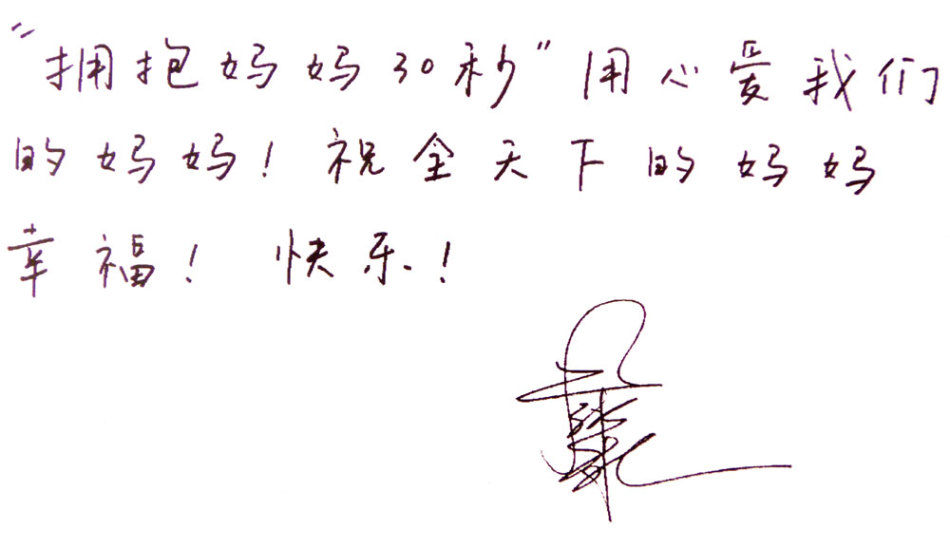 “拥抱妈妈30秒”用心爱我们
的妈妈！祝全天下的妈妈
幸福！快乐！